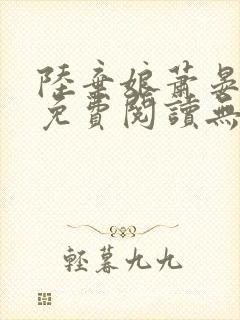 陸棄娘蕭晏
免費閱讀無
輕暮九九